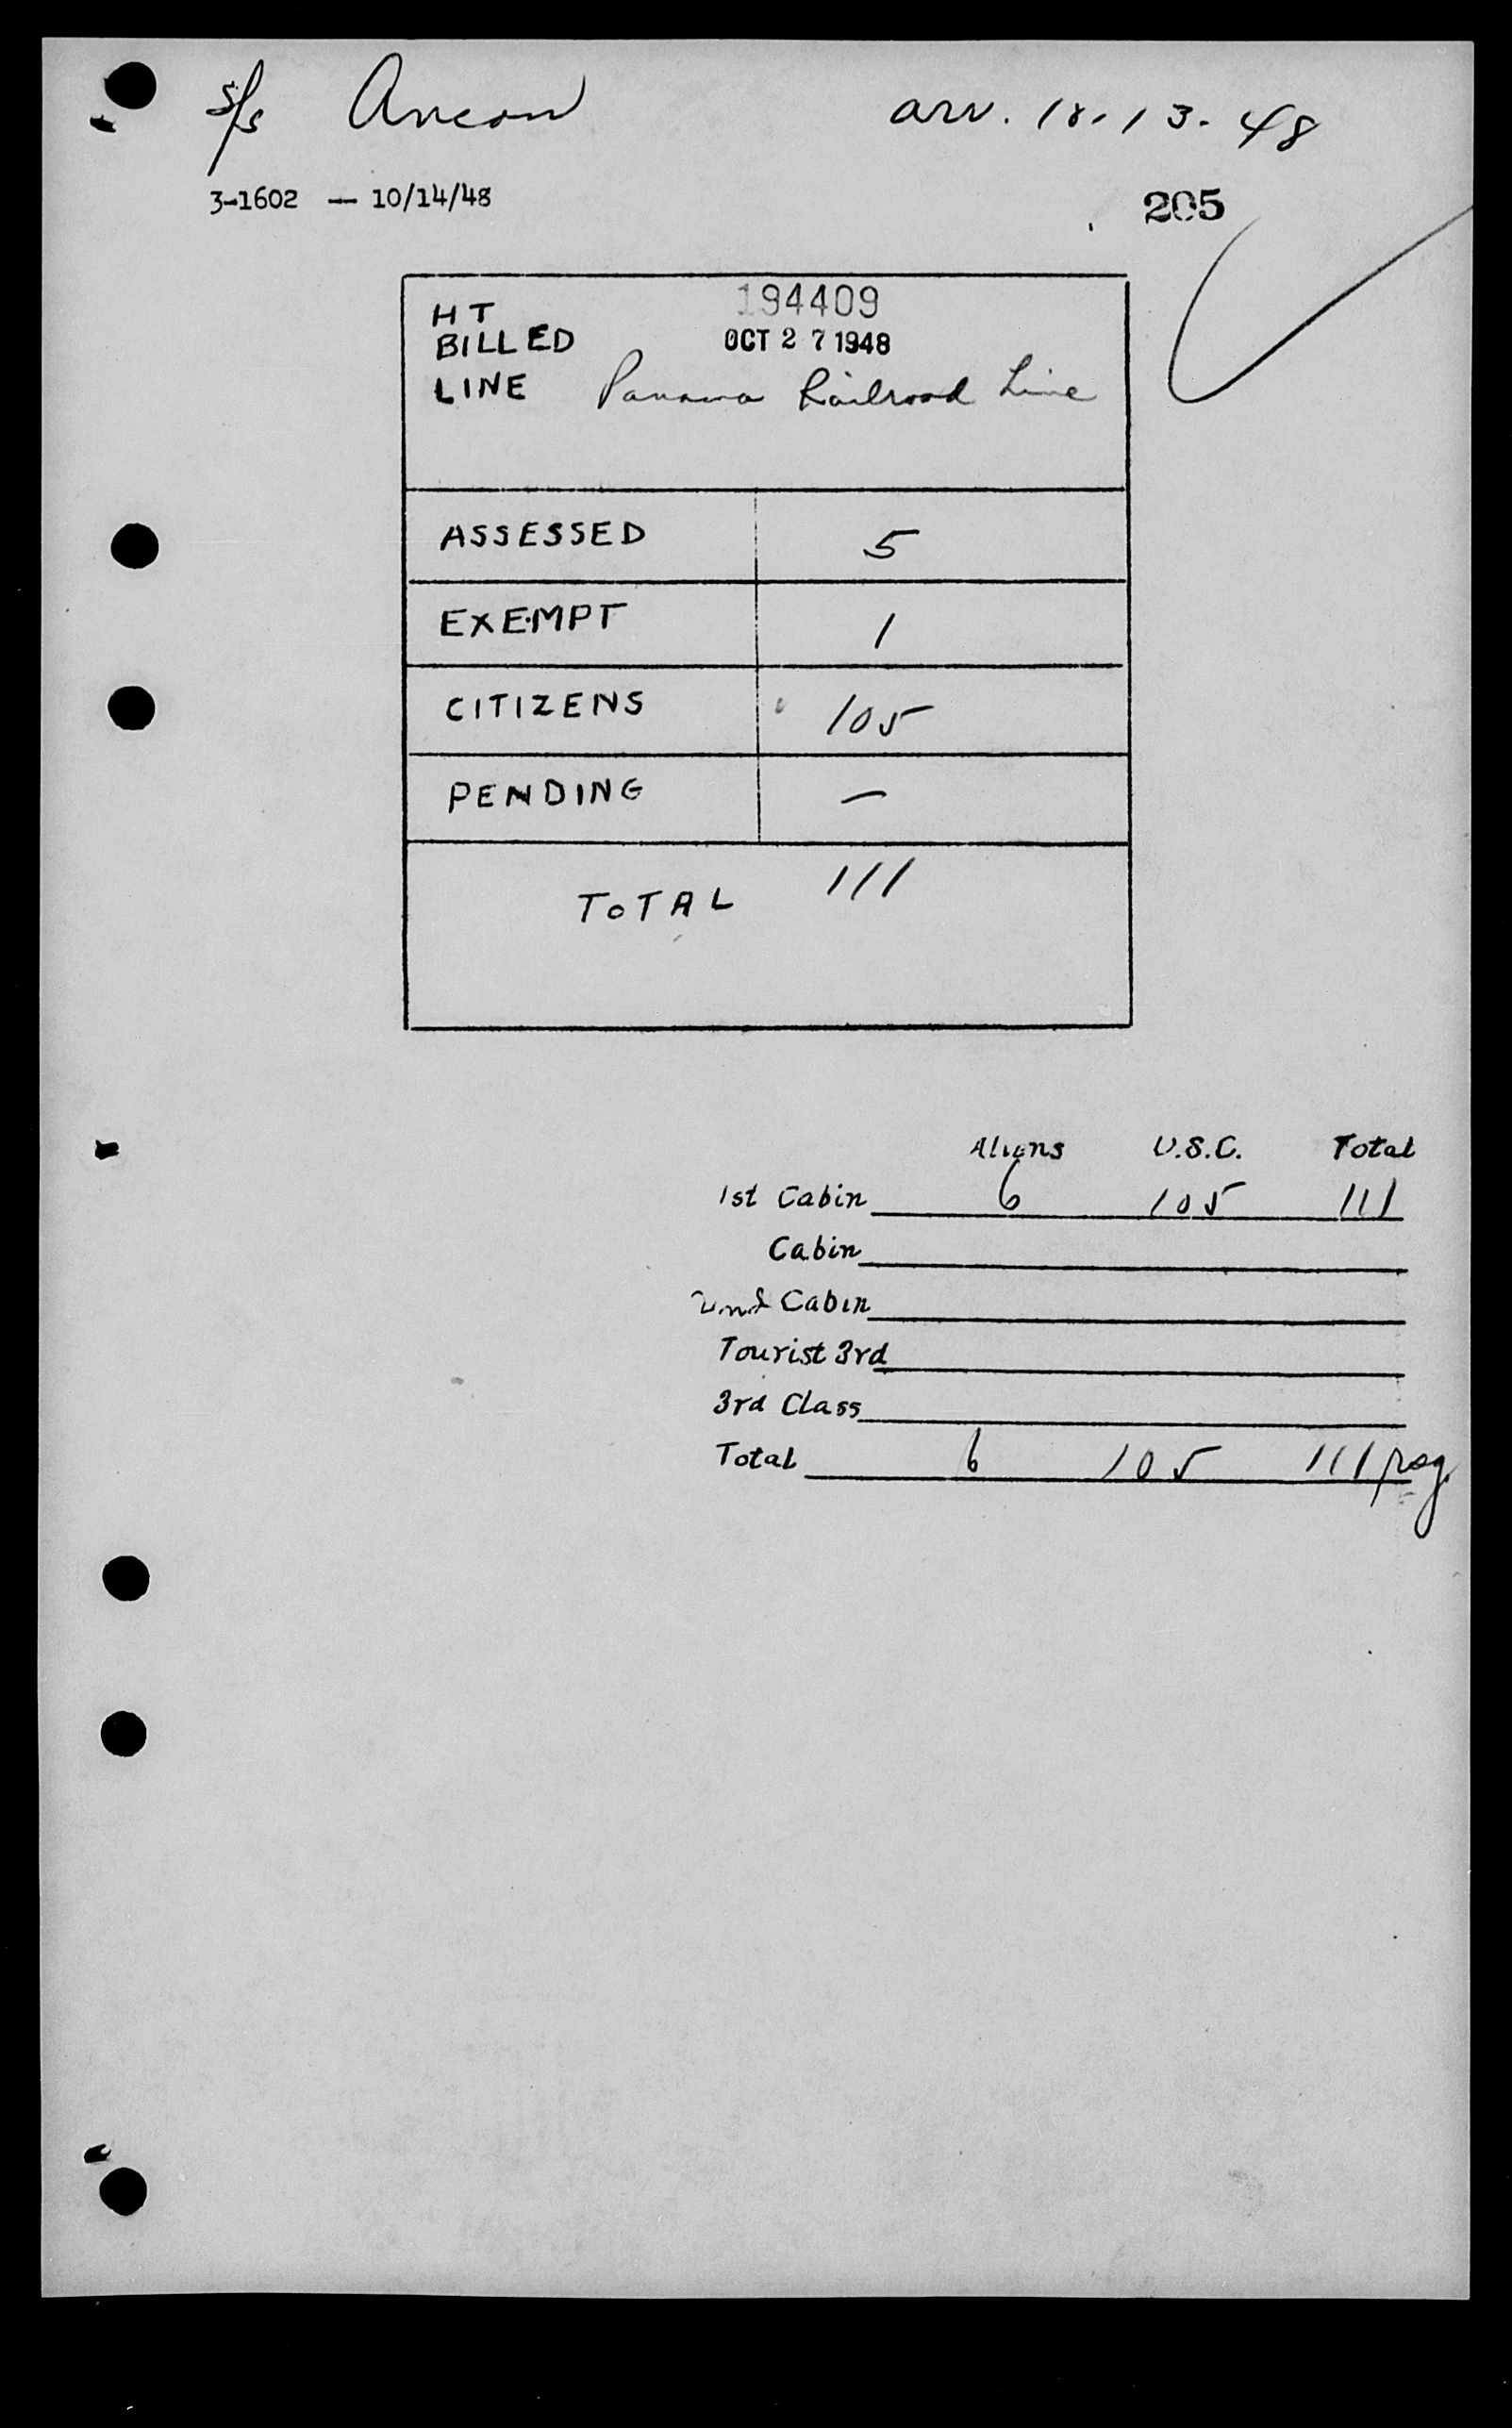 s/s Ancon arr. 10.13.48
3-1602 — 10/14/48
205
HT 194409
BILLED OCT 27 1948
LINE Panama Railroad Line
ASSESSED 5
EXEMPT 1
CITIZENS 105
PENDING —
TOTAL 111
Aliens U.S.C. Total
1st Cabin 6 105 111
Cabin
2nd Cabin
Tourist 3rd
3rd Class
Total 6 105 111